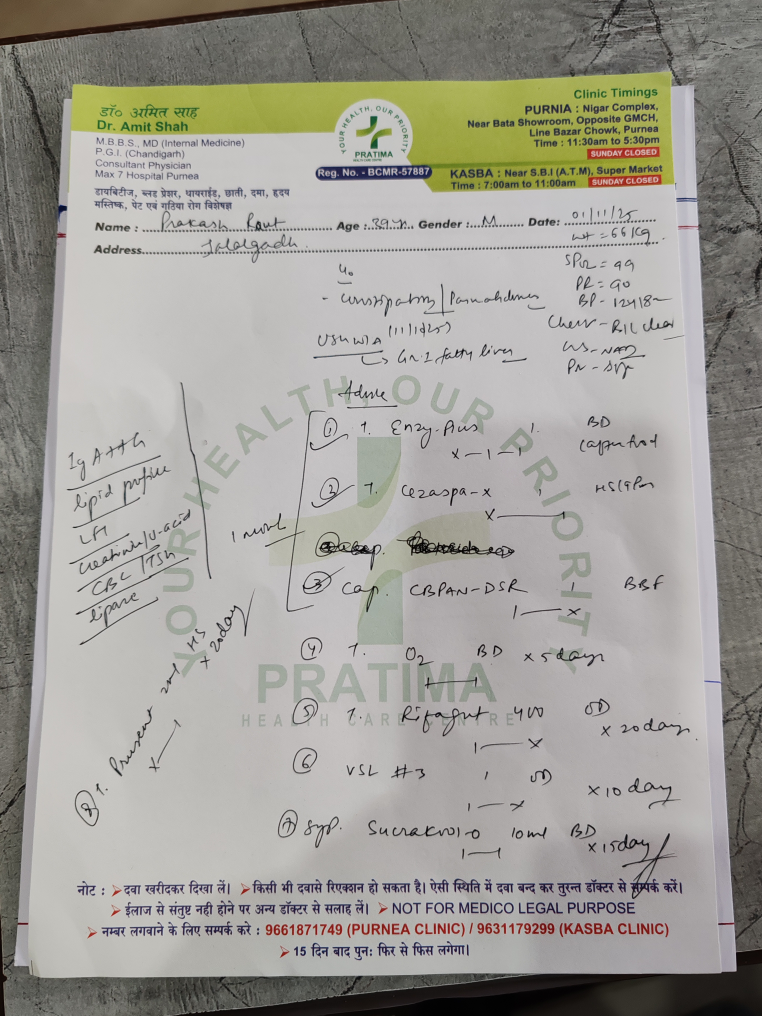 डॉ० अमित साह
Dr. Amit Shah
M.B.B.S., MD (Internal Medicine)
P.G.I. (Chandigarh)
Consultant Physician
Max 7 Hospital Purnea
डायबिटीज, ब्लड प्रेशर, थायराईड, छाती, दमा, हृदय
मस्तिष्क, पेट एवं गठिया रोग विशेषज्ञ
YOUR HEALTH, OUR PRIORITY
PRATIMA
HEALTH CARE CENTRE
Reg. No. - BCMR-57887
Clinic Timings
PURNIA : Nigar Complex,
Near Bata Showroom, Opposite GMCH,
Line Bazar Chowk, Purnea
Time : 11:30am to 5:30pm
SUNDAY CLOSED
KASBA : Near S.B.I (A.T.M), Super Market
Time : 7:00am to 11:00am SUNDAY CLOSED
Name : Prakash Rout Age : 39 yr Gender : M Date: 01/11/25
Address Jalalgadh
wt = 66 kg
SPO2 = 99
PR = 90
BP - 124/8
Chest - B/L clear
CVS - NAD
P/A - Soft
c/o
- Constipation /
USG W/A (11/1/25)
Gr-I fatty liver
Advise
① T. Enzy-Plus 1 BD
x-1-1
② T. Cezaspa-x 1 HS (9 Pm)
x 1
1 month
③ Cap. CBPAN-DSR BBF
1 - x
④ T. O2 BD x 5 days
1 - 1
⑤ T. Rifagut 400 OD x 20 days
1 - x
⑥ VSL #3 1 OD x 10 day
1 - x
⑦ Syp. Sucrakroi-O 10ml BD x 15 day
1 - 1
⑧ T. HS x 20 day
x - 1
lipid profile
LFT
Creatinine/U-acid
CBC / TSH
lipase
YOUR HEALTH, OUR PRIORITY
PRATIMA
HEALTH CARE CENTRE
नोट : ➤ दवा खरीदकर दिखा लें। ➤ किसी भी दवासे रिएक्शन हो सकता है। ऐसी स्थिति में दवा बन्द कर तुरन्त डॉक्टर से सम्पर्क करें।
➤ ईलाज से संतुष्ट नही होने पर अन्य डॉक्टर से सलाह लें। ➤ NOT FOR MEDICO LEGAL PURPOSE
➤ नम्बर लगवाने के लिए सम्पर्क करे : 9661871749 (PURNEA CLINIC) / 9631179299 (KASBA CLINIC)
➤ 15 दिन बाद पुन: फिर से फिस लगेगा।